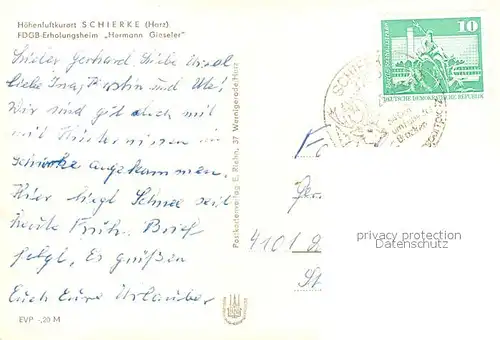 Höhenluftkurort SCHIERKE (Harz)
FDGB-Erholungsheim „Hermann Gieseler"
Lieber Gerhard, Liebe Ursel,
liebe Inas, Kerstin und Ute!
Wir sind gut auch mit
mit Hindernissen in
Schierke angekommen.
Hier liegt Schnee seit
heute Früh. Brief
folgt. Es grüßen
Euch Eure Urlauber
EVP -,20 M
Postkartenverlag E. Riehn, 37 Wernigerode Harz
10
DEUTSCHE DEMOKRATISCHE REPUBLIK
SCHIERKE
Brocken
4101
privacy protection
Datenschutz